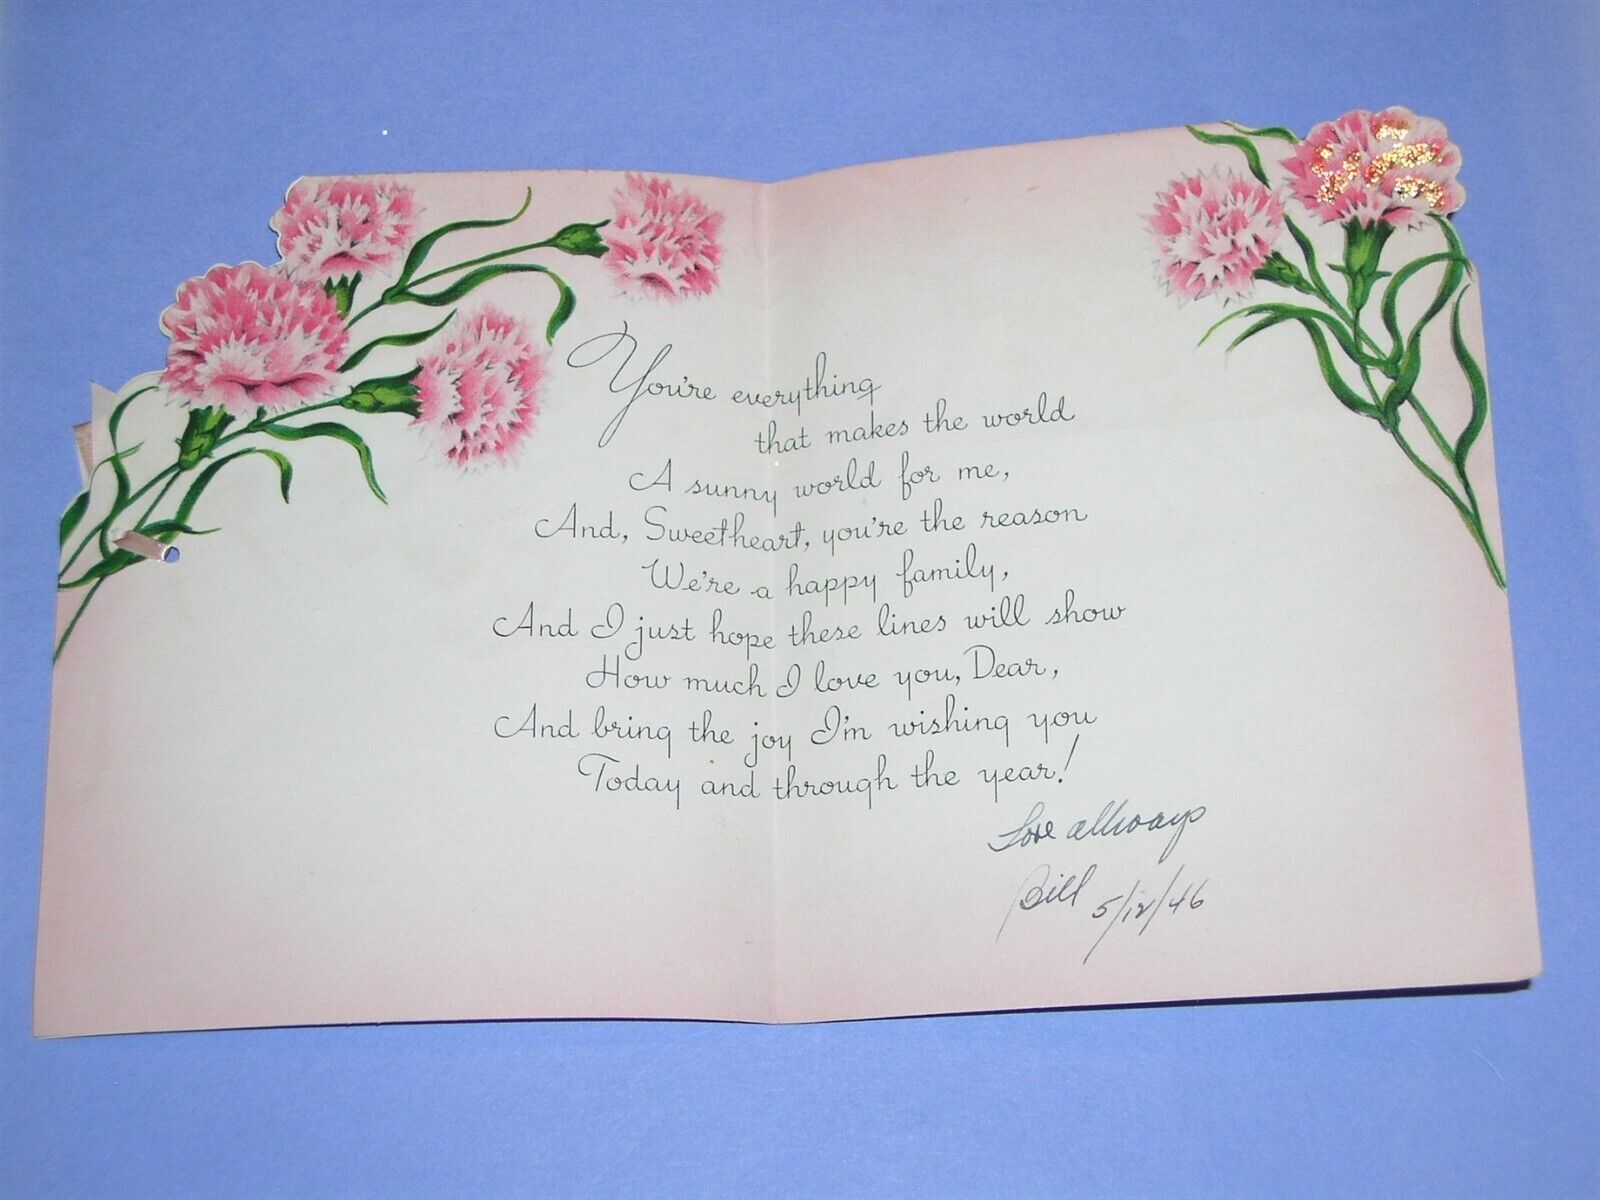 You're everything
that makes the world
A sunny world for me,
And, Sweetheart, you're the reason
We're a happy family,
And I just hope these lines will show
How much I love you, Dear,
And bring the joy I'm wishing you
Today and through the year!
Love allways
Bill 5/12/46